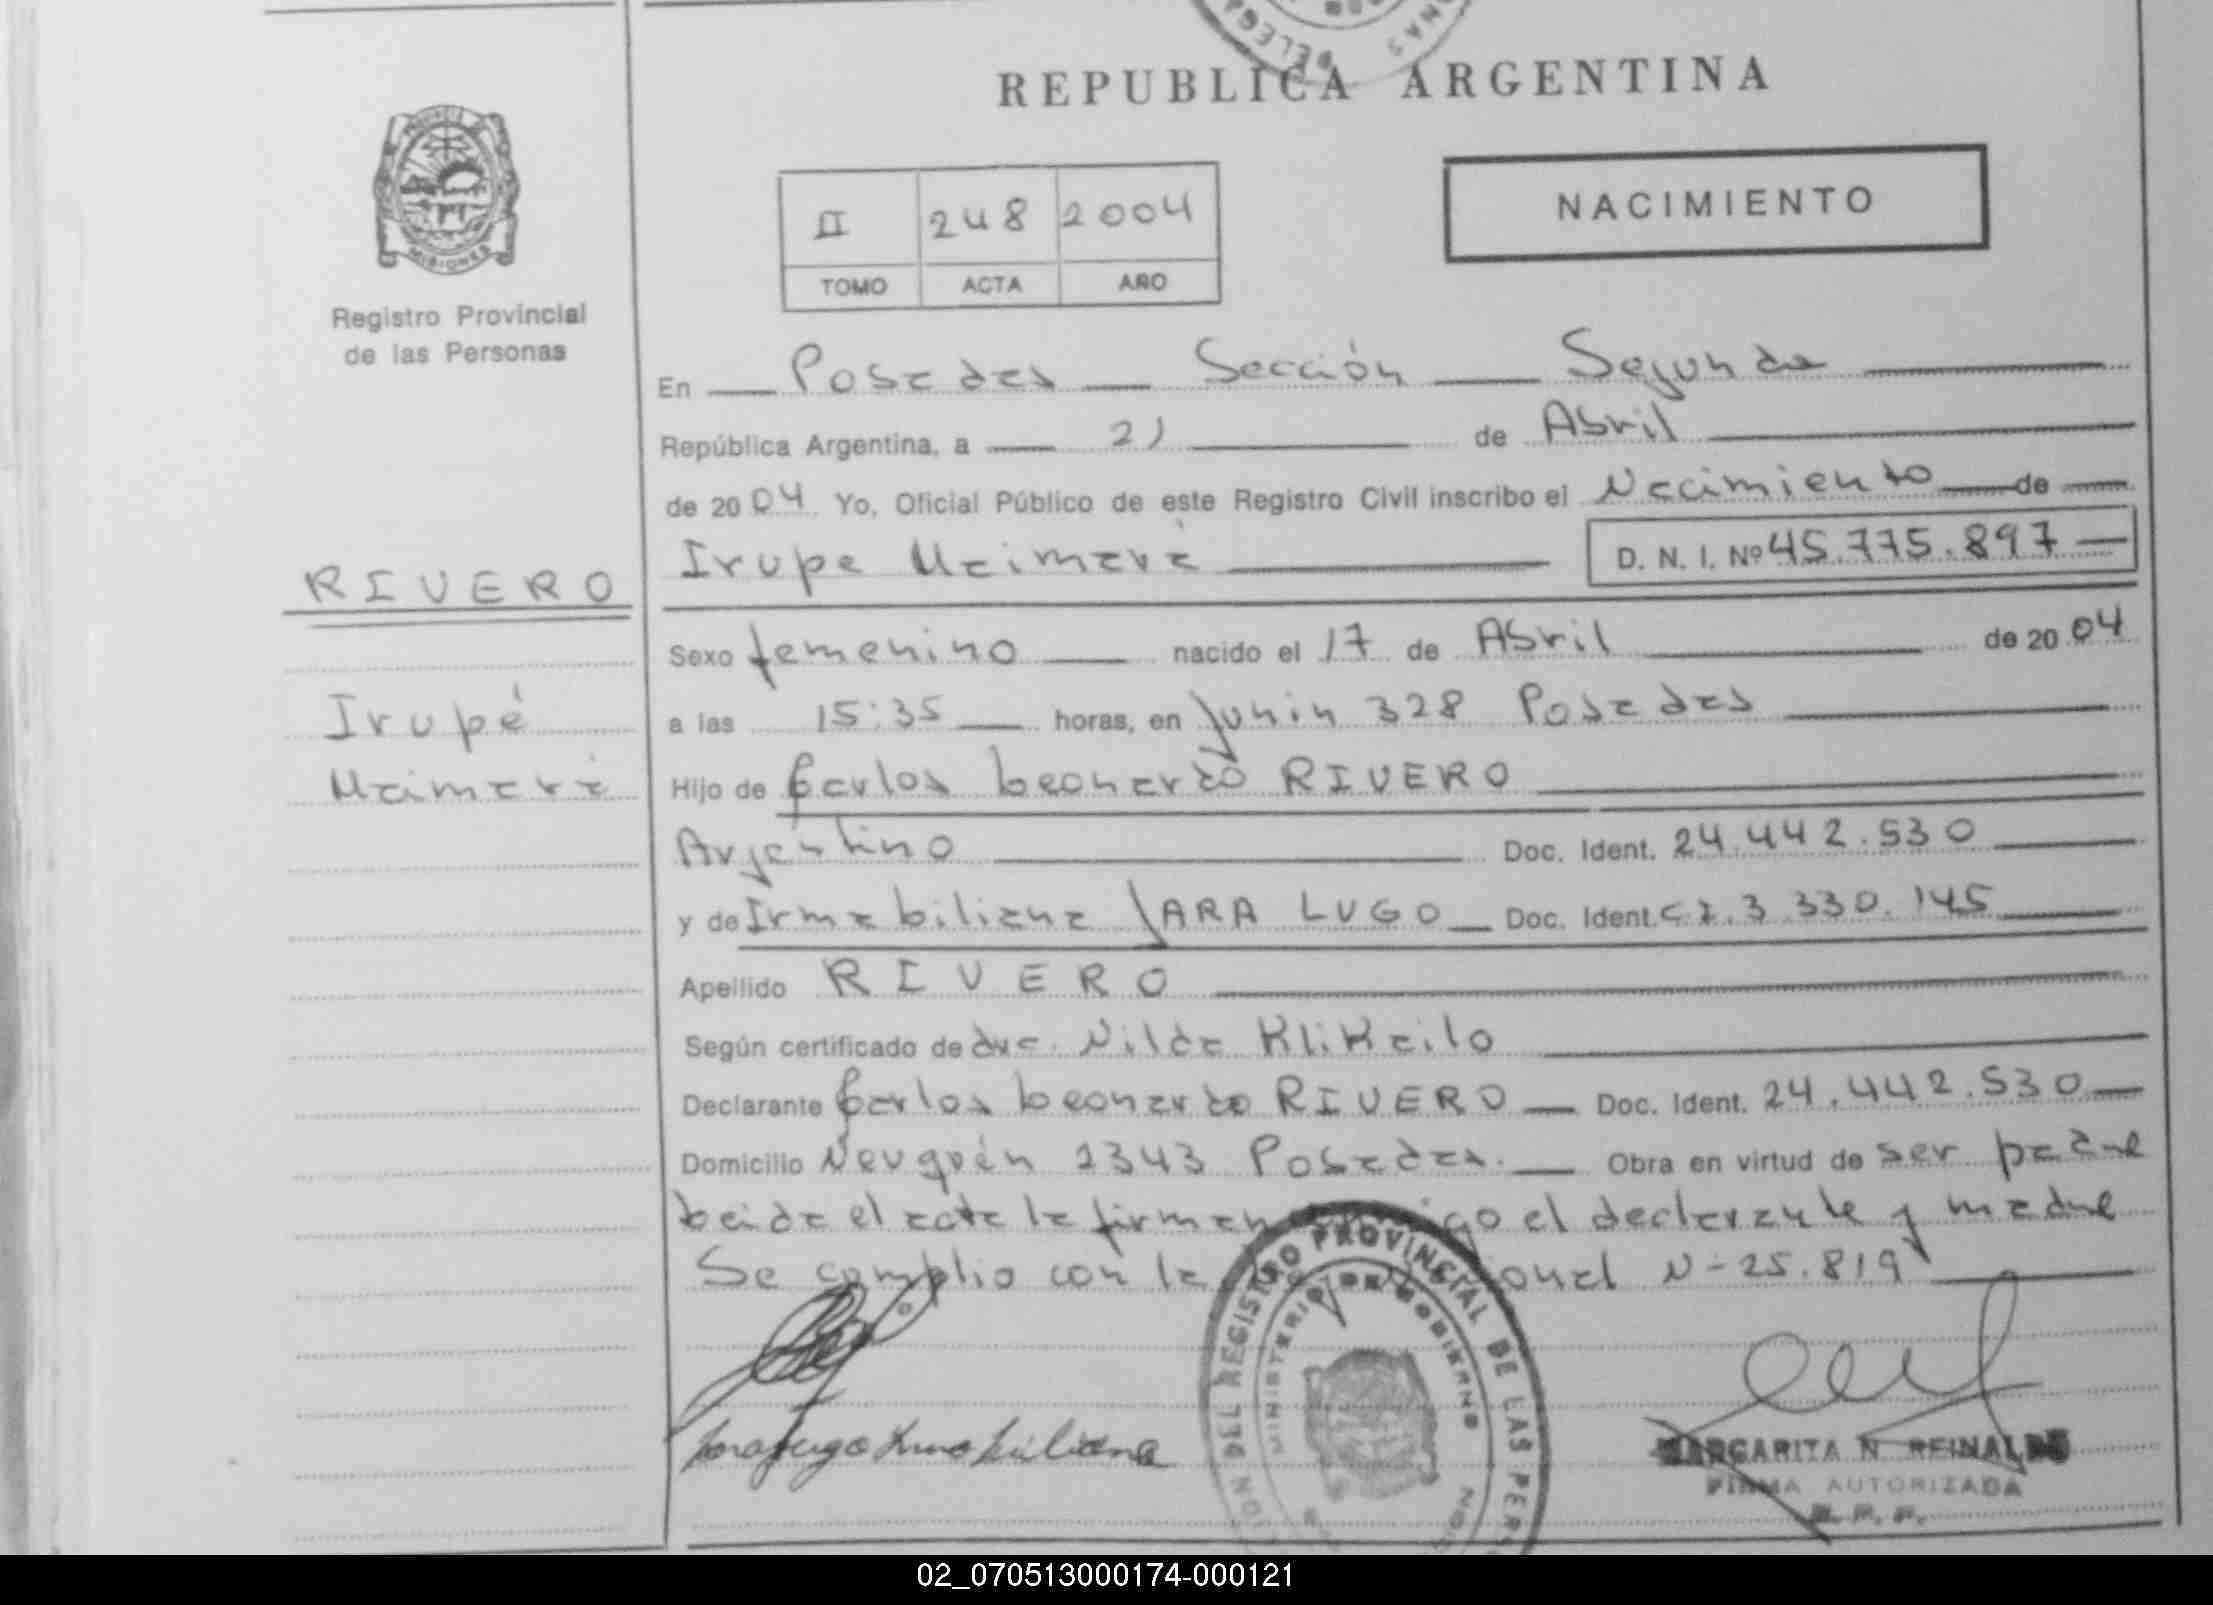 REPUBLICA ARGENTINA
MISIONES
Registro Provincial
de las Personas
NACIMIENTO
II 248 2004
TOMO ACTA AÑO
En Posadas Sección Segunda
República Argentina, a 21 de Abril
de 2004 Yo, Oficial Público de este Registro Civil inscribo el Nacimiento de
Irupe Maimará D. N. I. Nº 45.775.897
RIVERO
Irupé
Maimará
Sexo femenino nacido el 17 de Abril de 2004
a las 15:35 horas, en Junin 328 Posadas
Hijo de Carlos Leonardo RIVERO
Argentino Doc. Ident. 24.442.530
y de Irma Liliana JARA LUGO Doc. Ident. CI. 3 330.145
Apellido RIVERO
Según certificado de dra. Nilda Klikailo
Declarante Carlos Leonardo RIVERO Doc. Ident. 24.442.530
Domicilio Neuquén 2343 Posadas. Obra en virtud de ser padre
Leida el acta la firman el declarante y madre
Se complio con la N-25.819
REGISTRO PROVINCIAL DE LAS
MINISTERIO DE GOBIERNO
Jara Lugo Irma Liliana
MARGARITA N REINALDO
FIRMA AUTORIZADA
R. P. P.
02_070513000174-000121